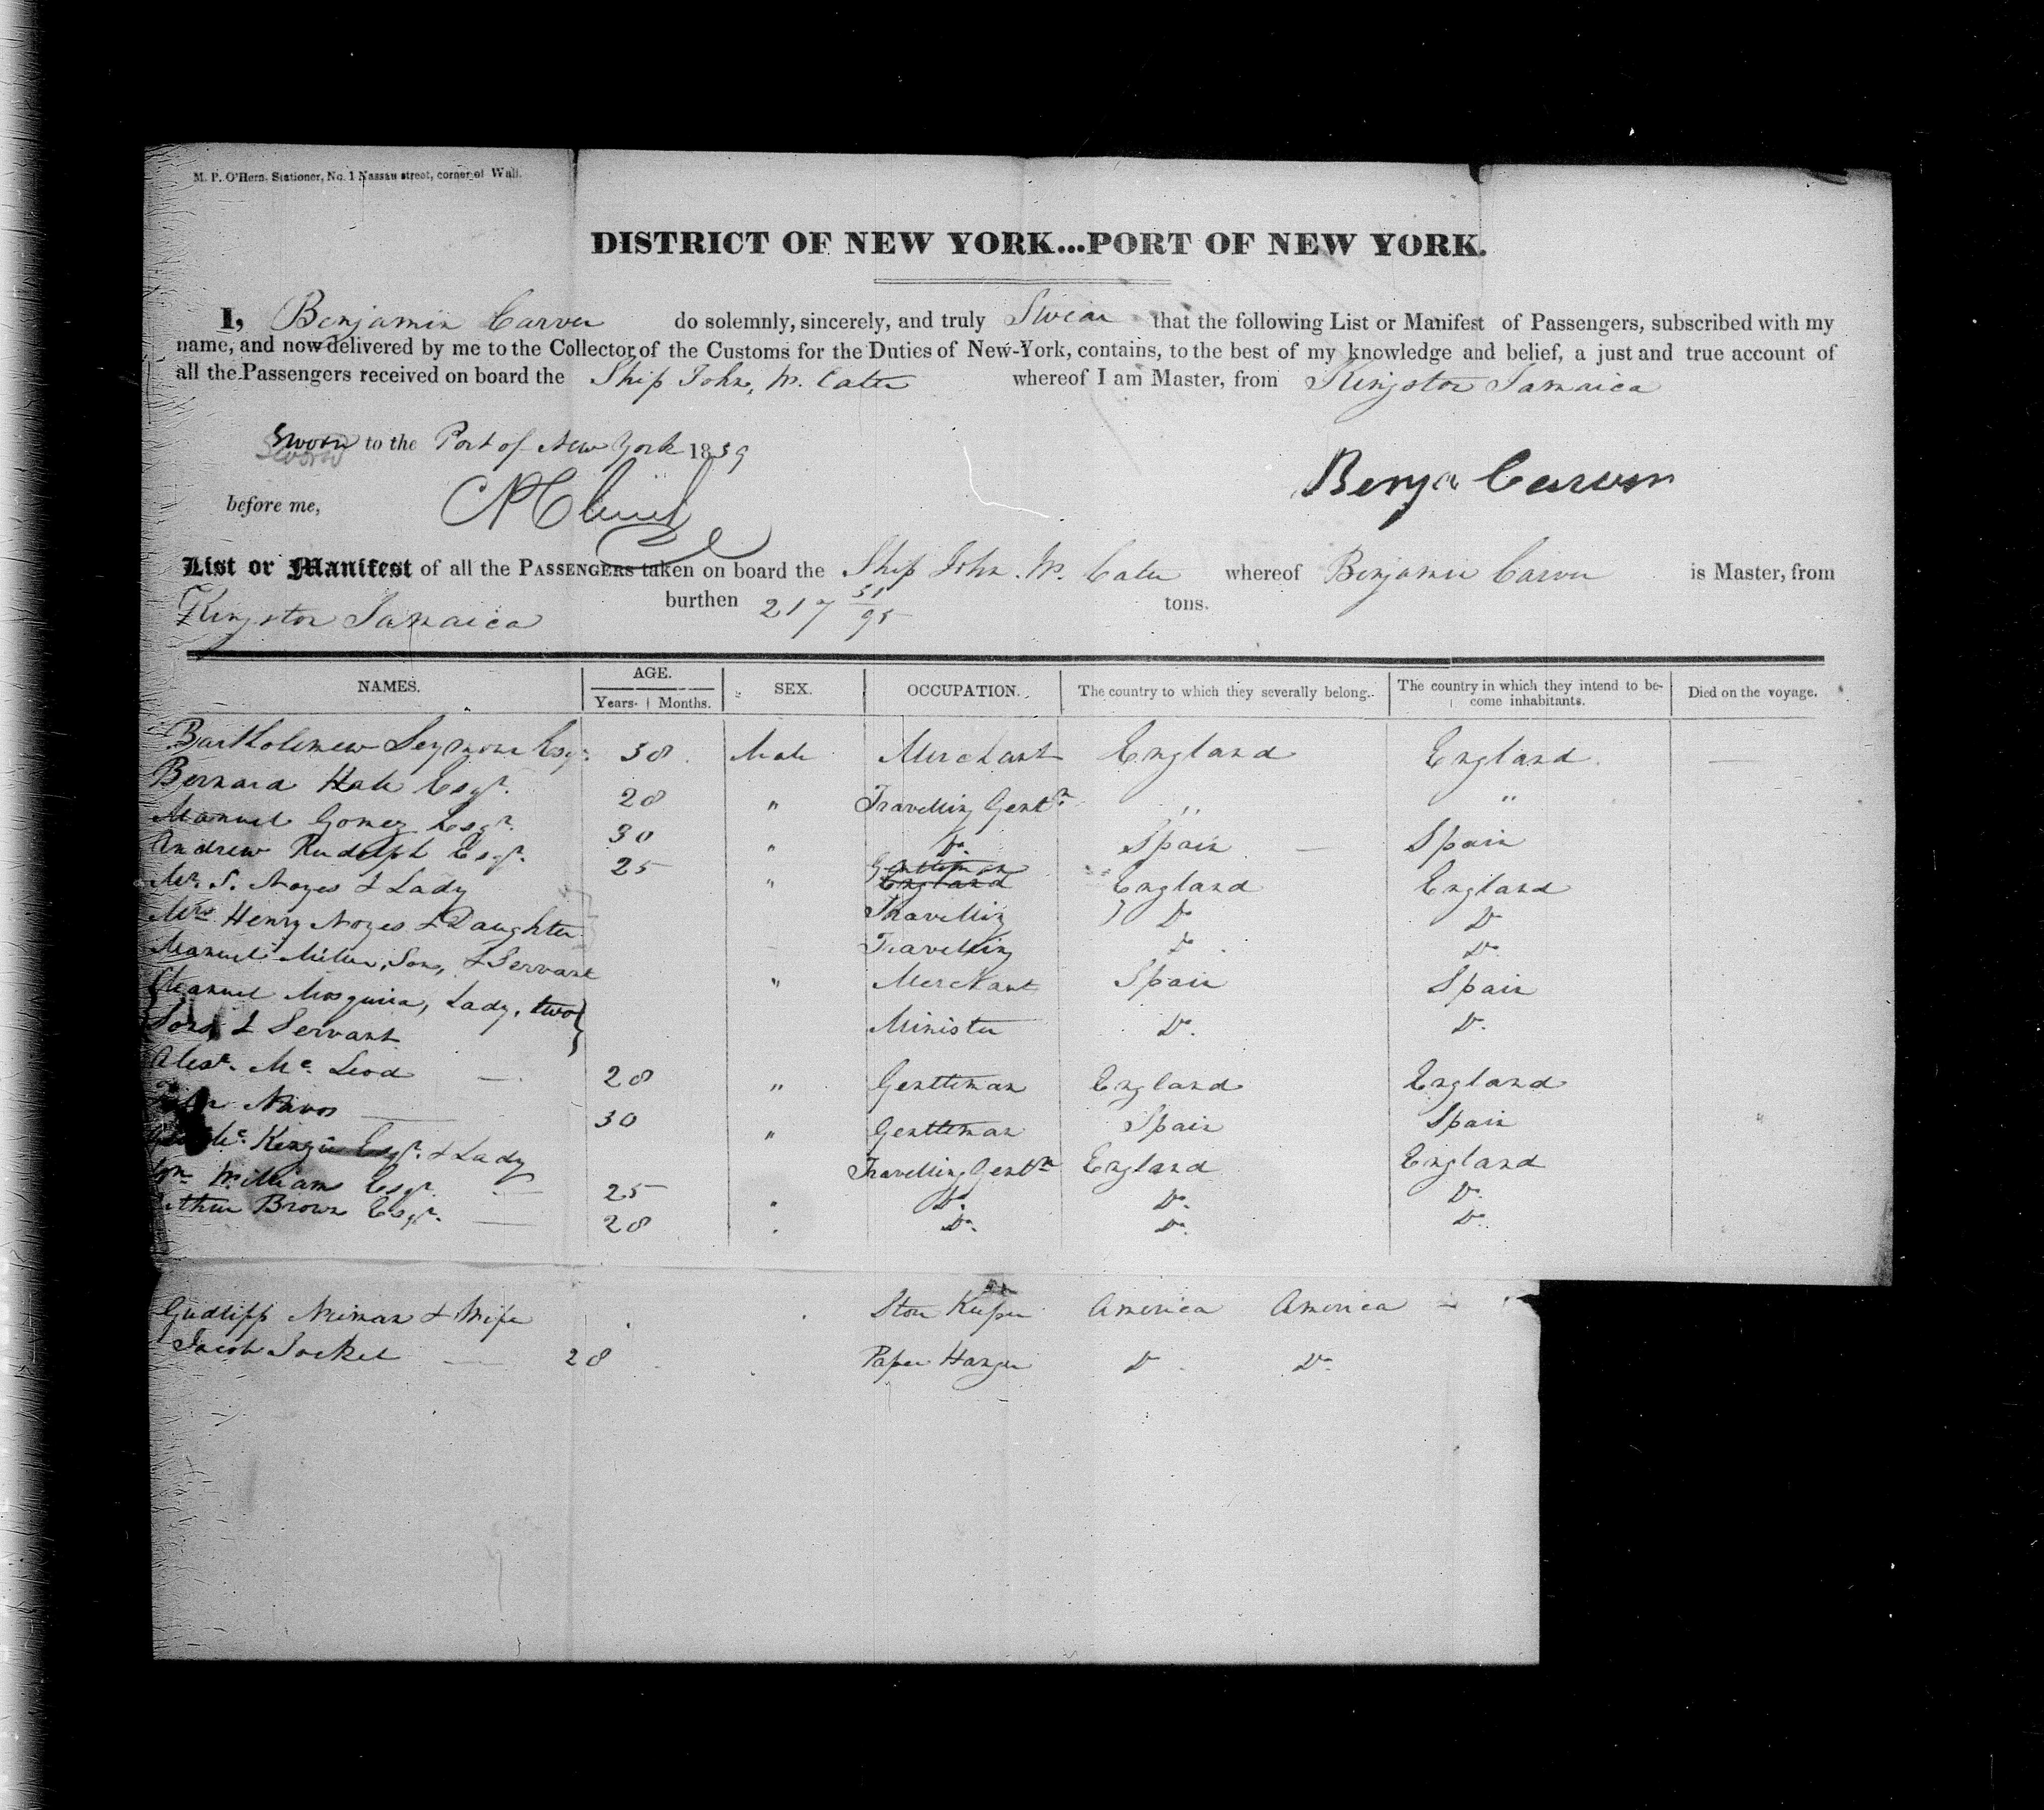 M. P. O'Hern, Stationer, No. 1 Nassau street, corner of Wall.
DISTRICT OF NEW YORK...PORT OF NEW YORK.
I, Benjamin Carver do solemnly, sincerely, and truly Swear that the following List or Manifest of Passengers, subscribed with my
name, and now delivered by me to the Collector of the Customs for the Duties of New-York, contains, to the best of my knowledge and belief, a just and true account of
all the Passengers received on board the Ship John W. Cater whereof I am Master, from Kingston Jamaica
Sworn to the Port of New York 1839
Sworn
Benja Carver
before me,
List or Manifest of all the PASSENGERS taken on board the Ship John W. Cater whereof Benjamin Carver is Master, from
Kingston Jamaica burthen 217 31/95 tons.
NAMES. AGE. SEX. OCCUPATION. The country to which they severally belong. The country in which they intend to be- Died on the voyage.
Years. Months. come inhabitants.
Bartholemew Seymour Esqr. 38 Male Merchant England England
Bernard Hale Esqr. 28 " Travelling Gentn. " "
Manuel Gomez Esqr. 30 " Do. Spain Spain
Andrew Rudolph Esqr. 25 " Gentleman England England England
Mr. S. Noyes & Lady Travelling Do Do
Mrs Henry Noyes & Daughter Travelling Do Do
Manuel Miller, Son, & Servant " Merchant Spain Spain
Manuel Mosquira, Lady, two
Sons & Servant Minister Do. Do.
Alexr. Mc. Leod 28 " Gentleman England England
Navos 30 " Gentleman Spain Spain
Mc. Kenzie Esqr. & Lady Travelling Gentn England England
Wm William Esqr. 25 " Do. Do. Do.
Arthur Brown Esqr. 28 " Do. Do. Do.
Gudlipp Neiman & Wife Store Keeper America America
Jacob Jockel 28 Paper Hanger Do. Do.